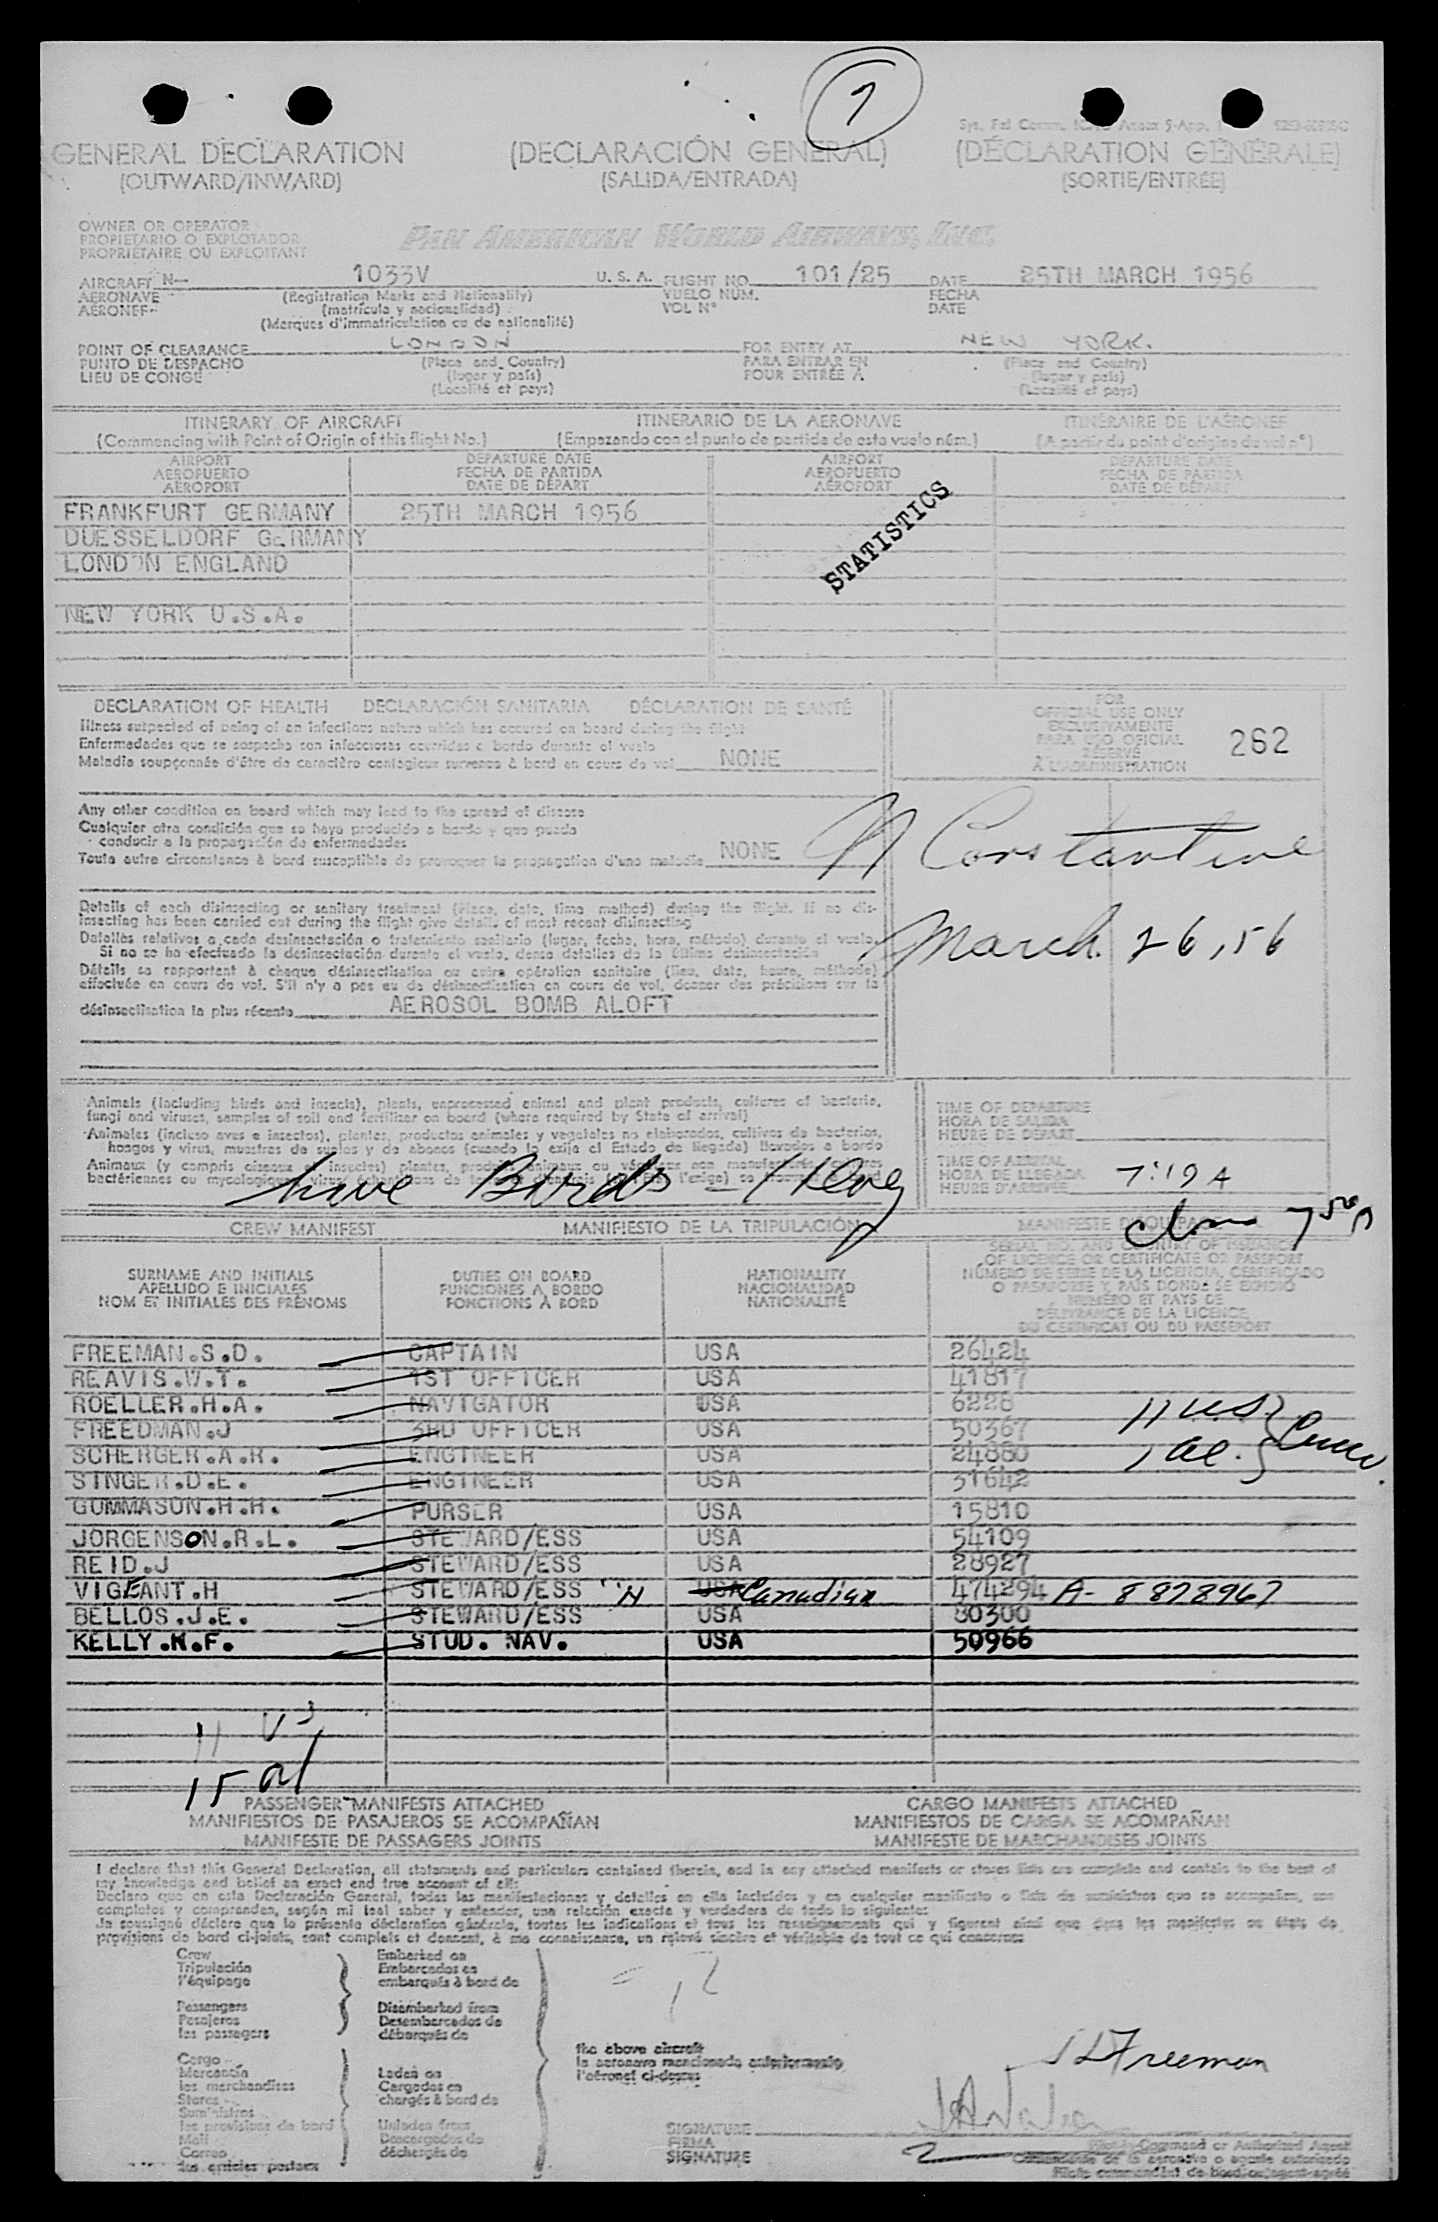 1
GENERAL DECLARATION (DECLARACIÓN GENERAL) (DÉCLARATION GÉNÉRALE)
(OUTWARD/INWARD) (SALIDA/ENTRADA) (SORTIE/ENTRÉE)
OWNER OR OPERATOR
PROPIETARIO O EXPLOTADOR
PROPRIÉTAIRE OU EXPLOITANT
PAN AMERICAN WORLD AIRWAYS, INC.
AIRCRAFT N— 1033V U. S. A. FLIGHT NO. 101/25 DATE 25TH MARCH 1956
AERONAVE (Registration Marks and Nationality) VUELO NUM. FECHA
AÉRONEF (matrícula y nacionalidad) VOL N° DATE
(Marques d'immatriculation ou de nationalité)
POINT OF CLEARANCE LONDON FOR ENTRY AT NEW YORK.
PUNTO DE DESPACHO (Place and Country) PARA ENTRAR EN (Place and Country)
LIEU DE CONGÉ (lugar y país) POUR ENTRÉE À (lugar y país)
(Localité et pays) (Localité et pays)
ITINERARY OF AIRCRAFT ITINERARIO DE LA AERONAVE ITINÉRAIRE DE L'AÉRONEF
(Commencing with Point of Origin of this flight No.) (Empezando con el punto de partida de este vuelo núm.) (A partir du point d'origine du vol n°)
AIRPORT DEPARTURE DATE AIRPORT DEPARTURE DATE
AEROPUERTO FECHA DE PARTIDA AEROPUERTO FECHA DE PARTIDA
AÉROPORT DATE DE DÉPART AÉROPORT DATE DE DÉPART
FRANKFURT GERMANY 25TH MARCH 1956
DUESSELDORF GERMANY
LONDON ENGLAND
STATISTICS
NEW YORK U.S.A.
DECLARATION OF HEALTH DECLARACIÓN SANITARIA DÉCLARATION DE SANTÉ
Illness suspected of being of an infectious nature which has occured on board during the flight
Enfermedades que se sospecha son infecciosas ocurridas a bordo durante el vuelo
Maladie soupçonnée d'être de caractère contagieux survenue à bord en cours de vol NONE
FOR
OFFICIAL USE ONLY
EXCLUSIVAMENTE
PARA USO OFICIAL
RÉSERVÉ
À L'ADMINISTRATION
262
Any other condition on board which may lead to the spread of disease
Cualquier otra condición que se haya producido a bordo y que pueda
conducir a la propagación de enfermedades
Toute autre circonstance à bord susceptible de provoquer la propagation d'une maladie NONE
N Constantine
March 26, 56
Details of each disinsecting or sanitary treatment (Place, date, time, method) during the flight. If no dis-
insecting has been carried out during the flight give details of most recent disinsecting
Detalles relativos a cada desinsectación o tratamiento sanitario (lugar, fecha, hora, método) durante el vuelo.
Si no se ha efectuado la desinsectación durante el vuelo, dense detalles de la última desinsectación
Détails se rapportent à chaque désinsectisation ou autre opération sanitaire (lieu, date, heure, méthode)
effectuée en cours de vol. S'il n'y a pas eu de désinsectisation en cours de vol, donner des précisions sur la
désinsectisation la plus récente AEROSOL BOMB ALOFT
Animals (including birds and insects), plants, unprocessed animal and plant products, cultures of bacteria,
fungi and viruses, samples of soil and fertilizer on board (where required by State of arrival)
Animales (incluso aves e insectos), plantas, productos animales y vegetales no elaborados, cultivos de bacterias,
hongos y virus, muestras de suelos y de abonos (cuando lo exija el Estado de llegada) llevados a bordo
Animaux (y compris oiseaux et insectes) plantes,
live Birds - 1 Dog
TIME OF DEPARTURE
HORA DE SALIDA
HEURE DE DÉPART
TIME OF ARRIVAL
HORA DE LLEGADA
HEURE D'ARRIVÉE
7:19 A
CREW MANIFEST MANIFIESTO DE LA TRIPULACIÓN MANIFESTE D'ÉQUIPAGE
SURNAME AND INITIALS
APELLIDO E INICIALES
NOM ET INITIALES DES PRÉNOMS
DUTIES ON BOARD
FUNCIONES A BORDO
FONCTIONS À BORD
NATIONALITY
NACIONALIDAD
NATIONALITÉ
SERIAL NO. AND COUNTRY OF ISSUANCE
OF LICENCE OR CERTIFICATE OR PASSPORT
NÚMERO DE SERIE DE LA LICENCIA, CERTIFICADO
O PASAPORTE Y PAÍS DONDE SE EXPIDIÓ
NUMÉRO ET PAYS DE
DÉLIVRANCE DE LA LICENCE,
DU CERTIFICAT OU DU PASSEPORT
FREEMAN.S.D. CAPTAIN USA 26424
REAVIS.W.T. 1ST OFFICER USA 41817
ROELLER.H.A. NAVIGATOR USA 6228
FREEDMAN.J 3RD OFFICER USA 50367
SCHERGER.A.R. ENGINEER USA 24880
SINGER.D.E. ENGINEER USA 31642
GUMMASON.H.H. PURSER USA 15810
JORGENSON.R.L. STEWARD/ESS USA 54109
REID.J STEWARD/ESS USA 28927
VIGEANT.H STEWARD/ESS "N USA Canadian 474294 A- 8878967
BELLOS.J.E. STEWARD/ESS USA 80300
KELLY.R.F. STUD. NAV. USA 50966
PASSENGER MANIFESTS ATTACHED CARGO MANIFESTS ATTACHED
MANIFIESTOS DE PASAJEROS SE ACOMPAÑAN MANIFIESTOS DE CARGA SE ACOMPAÑAN
MANIFESTE DE PASSAGERS JOINTS MANIFESTE DE MARCHANDISES JOINTS
I declare that this General Declaration, all statements and particulars contained therein, and in any attached manifests or stores lists are complete and contain to the best of
my knowledge and belief an exact and true account of all:
Declaro que en esta Declaración General, todas las manifestaciones y detalles en ella incluidos y en cualquier manifiesto o lista de suministros que se acompañen, son
completos y comprenden, según mi leal saber y entender, una relación exacta y verdadera de todo lo siguiente:
Je soussigné déclare que la présente déclaration générale, toutes les indications et tous les renseignements qui y figurent ainsi que dans les manifestes ou états de
provisions de bord ci-joints, sont complets et donnent, à ma connaissance, un relevé sincère et véritable de tout ce qui concerne:
Crew Embarked on
Tripulación Embarcados en
l'équipage embarqués à bord de
Passengers Disembarked from
Pasajeros Desembarcados de
les passagers débarqués de
Cargo
Mercancía Laden on
les marchandises Cargados en
Stores chargés à bord de
Suministros
les provisions de bord Unladen from
Mail Descargados de
Correo déchargés de
les articles postaux
the above aircraft
la aeronave mencionada anteriormente
l'aéronef ci-dessus
S D Freeman
SIGNATURE
FIRMA
SIGNATURE
Pilot in Command or Authorized Agent
Comandante de la aeronave o agente autorizado
Pilote commandant de bord ou agent agréé